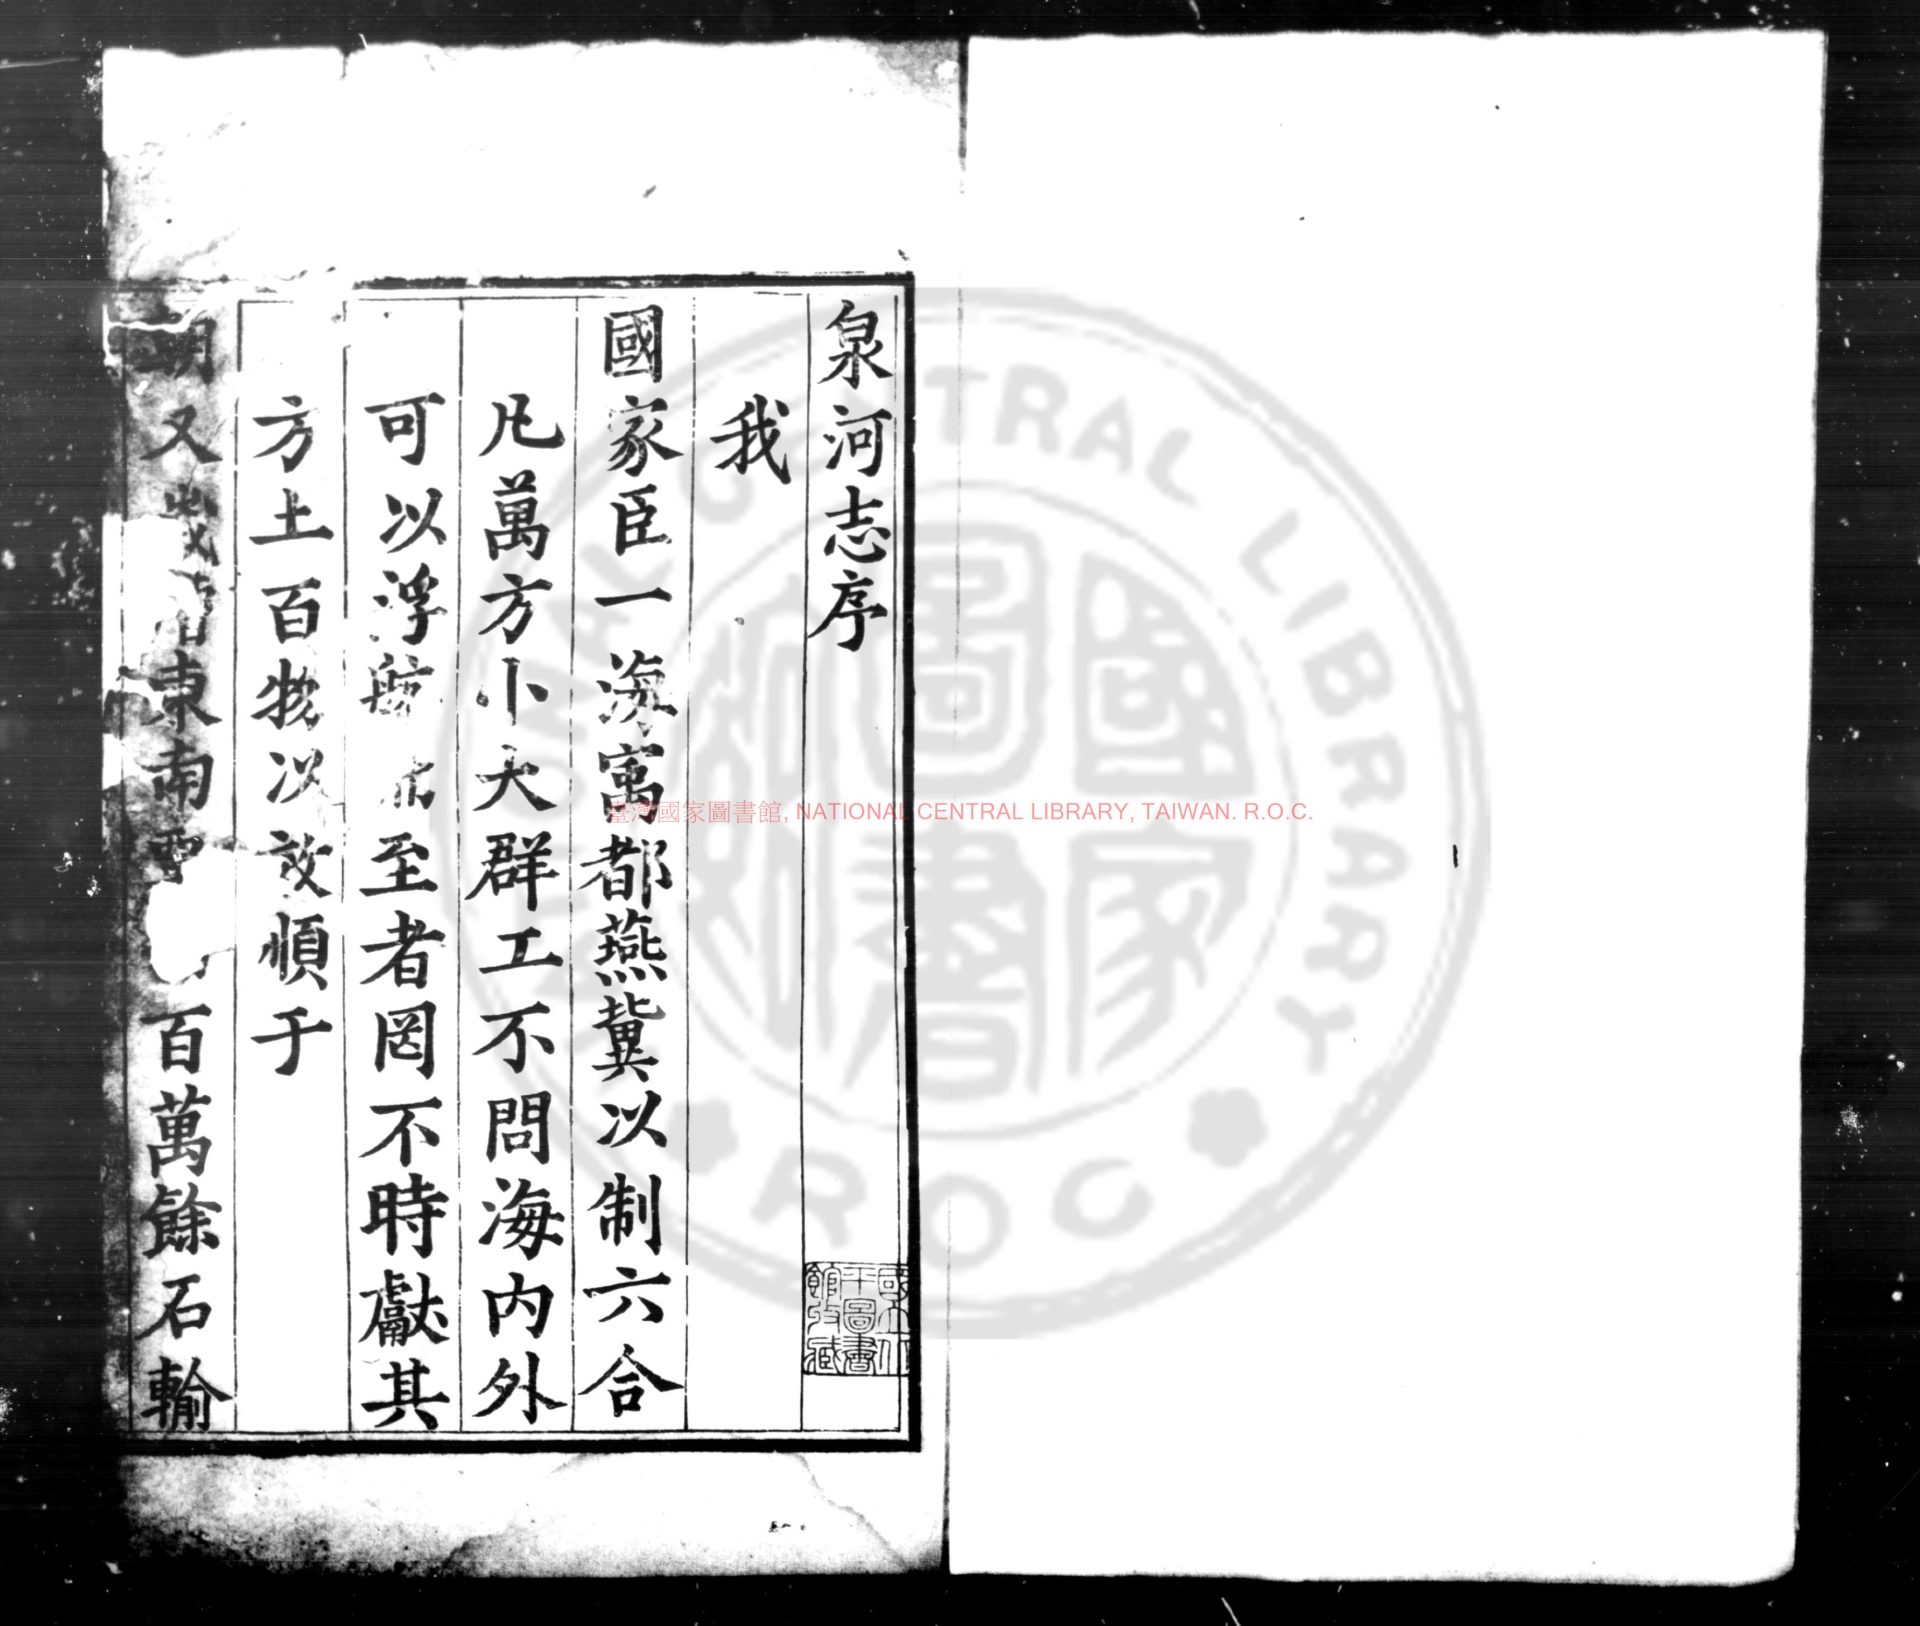 泉河志序
我
國家臣一海寓都燕冀以制六合
凡萬方小大群工不問海内外
可以浮航 至者罔不時獻其
方土百物以效順于
朝又歲 東南 百萬餘石輸
國立北平圖書館收藏
臺灣國家圖書館, NATIONAL CENTRAL LIBRARY, TAIWAN. R.O.C.
NATIONAL CENTRAL LIBRARY
ROC
國家圖書